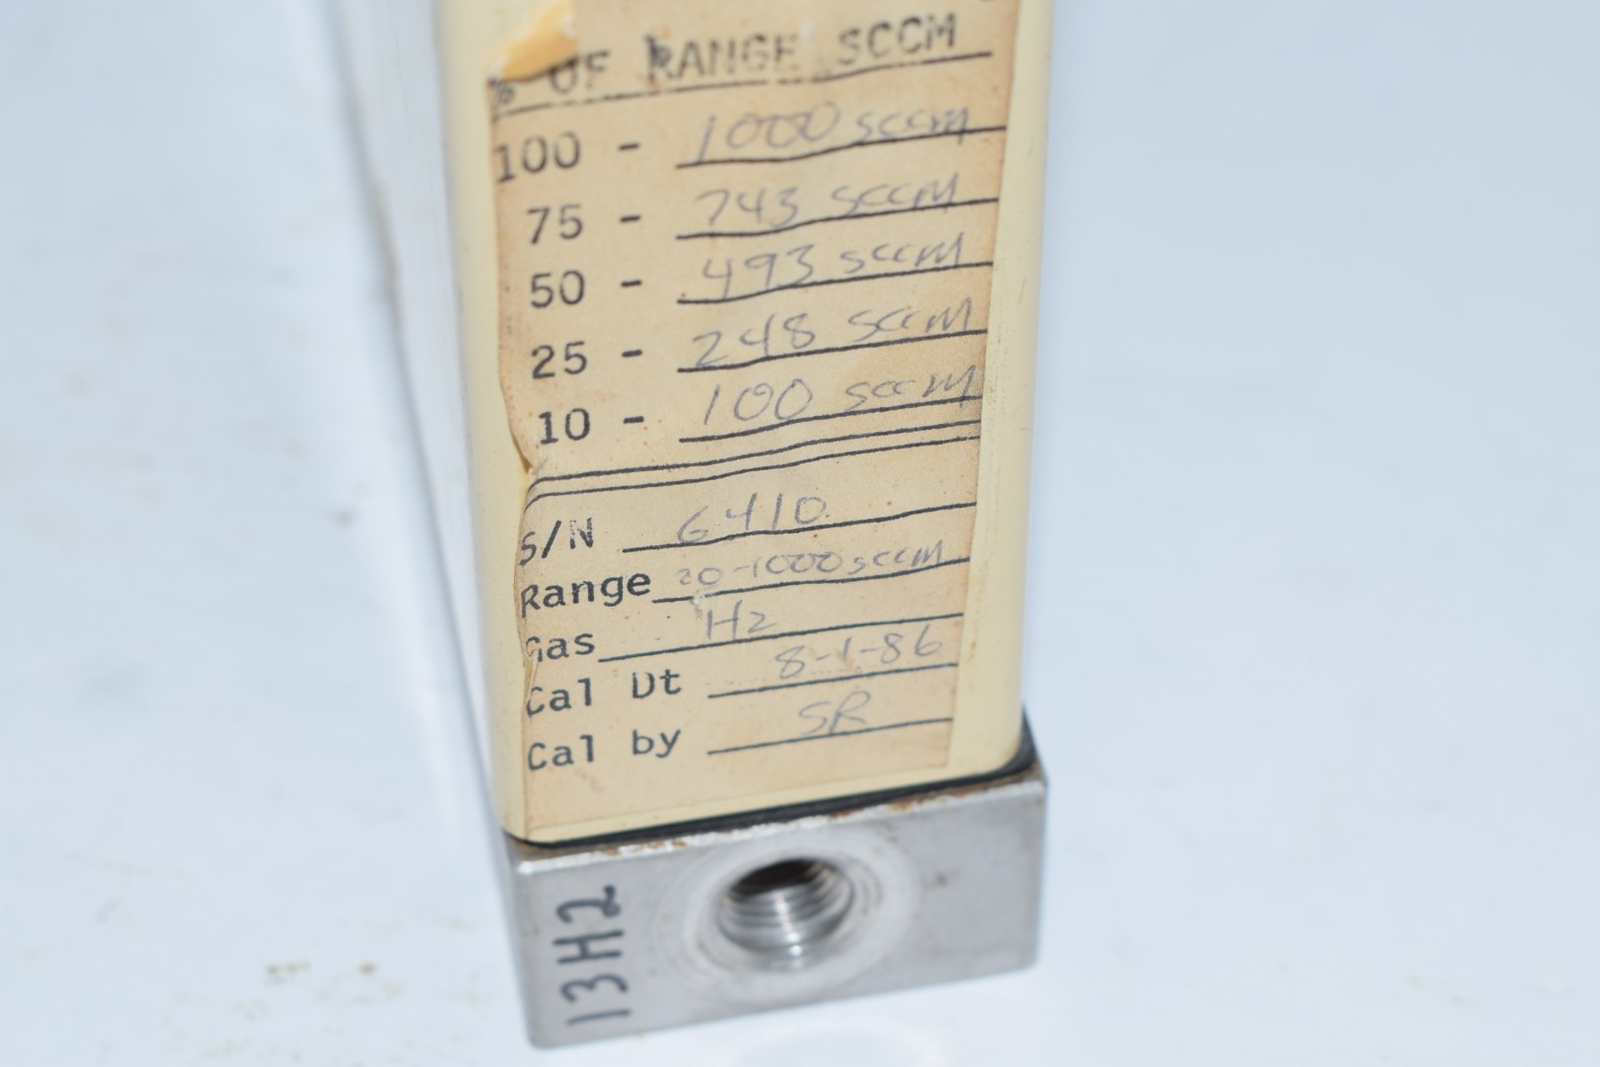 % OF RANGE SCCM
100 - 1000 sccm
75 - 743 sccm
50 - 493 sccm
25 - 248 sccm
10 - 100 sccm
S/N 6410
Range 20-1000 sccm
Gas H2
Cal Dt 8-1-86
Cal by SR
13H2